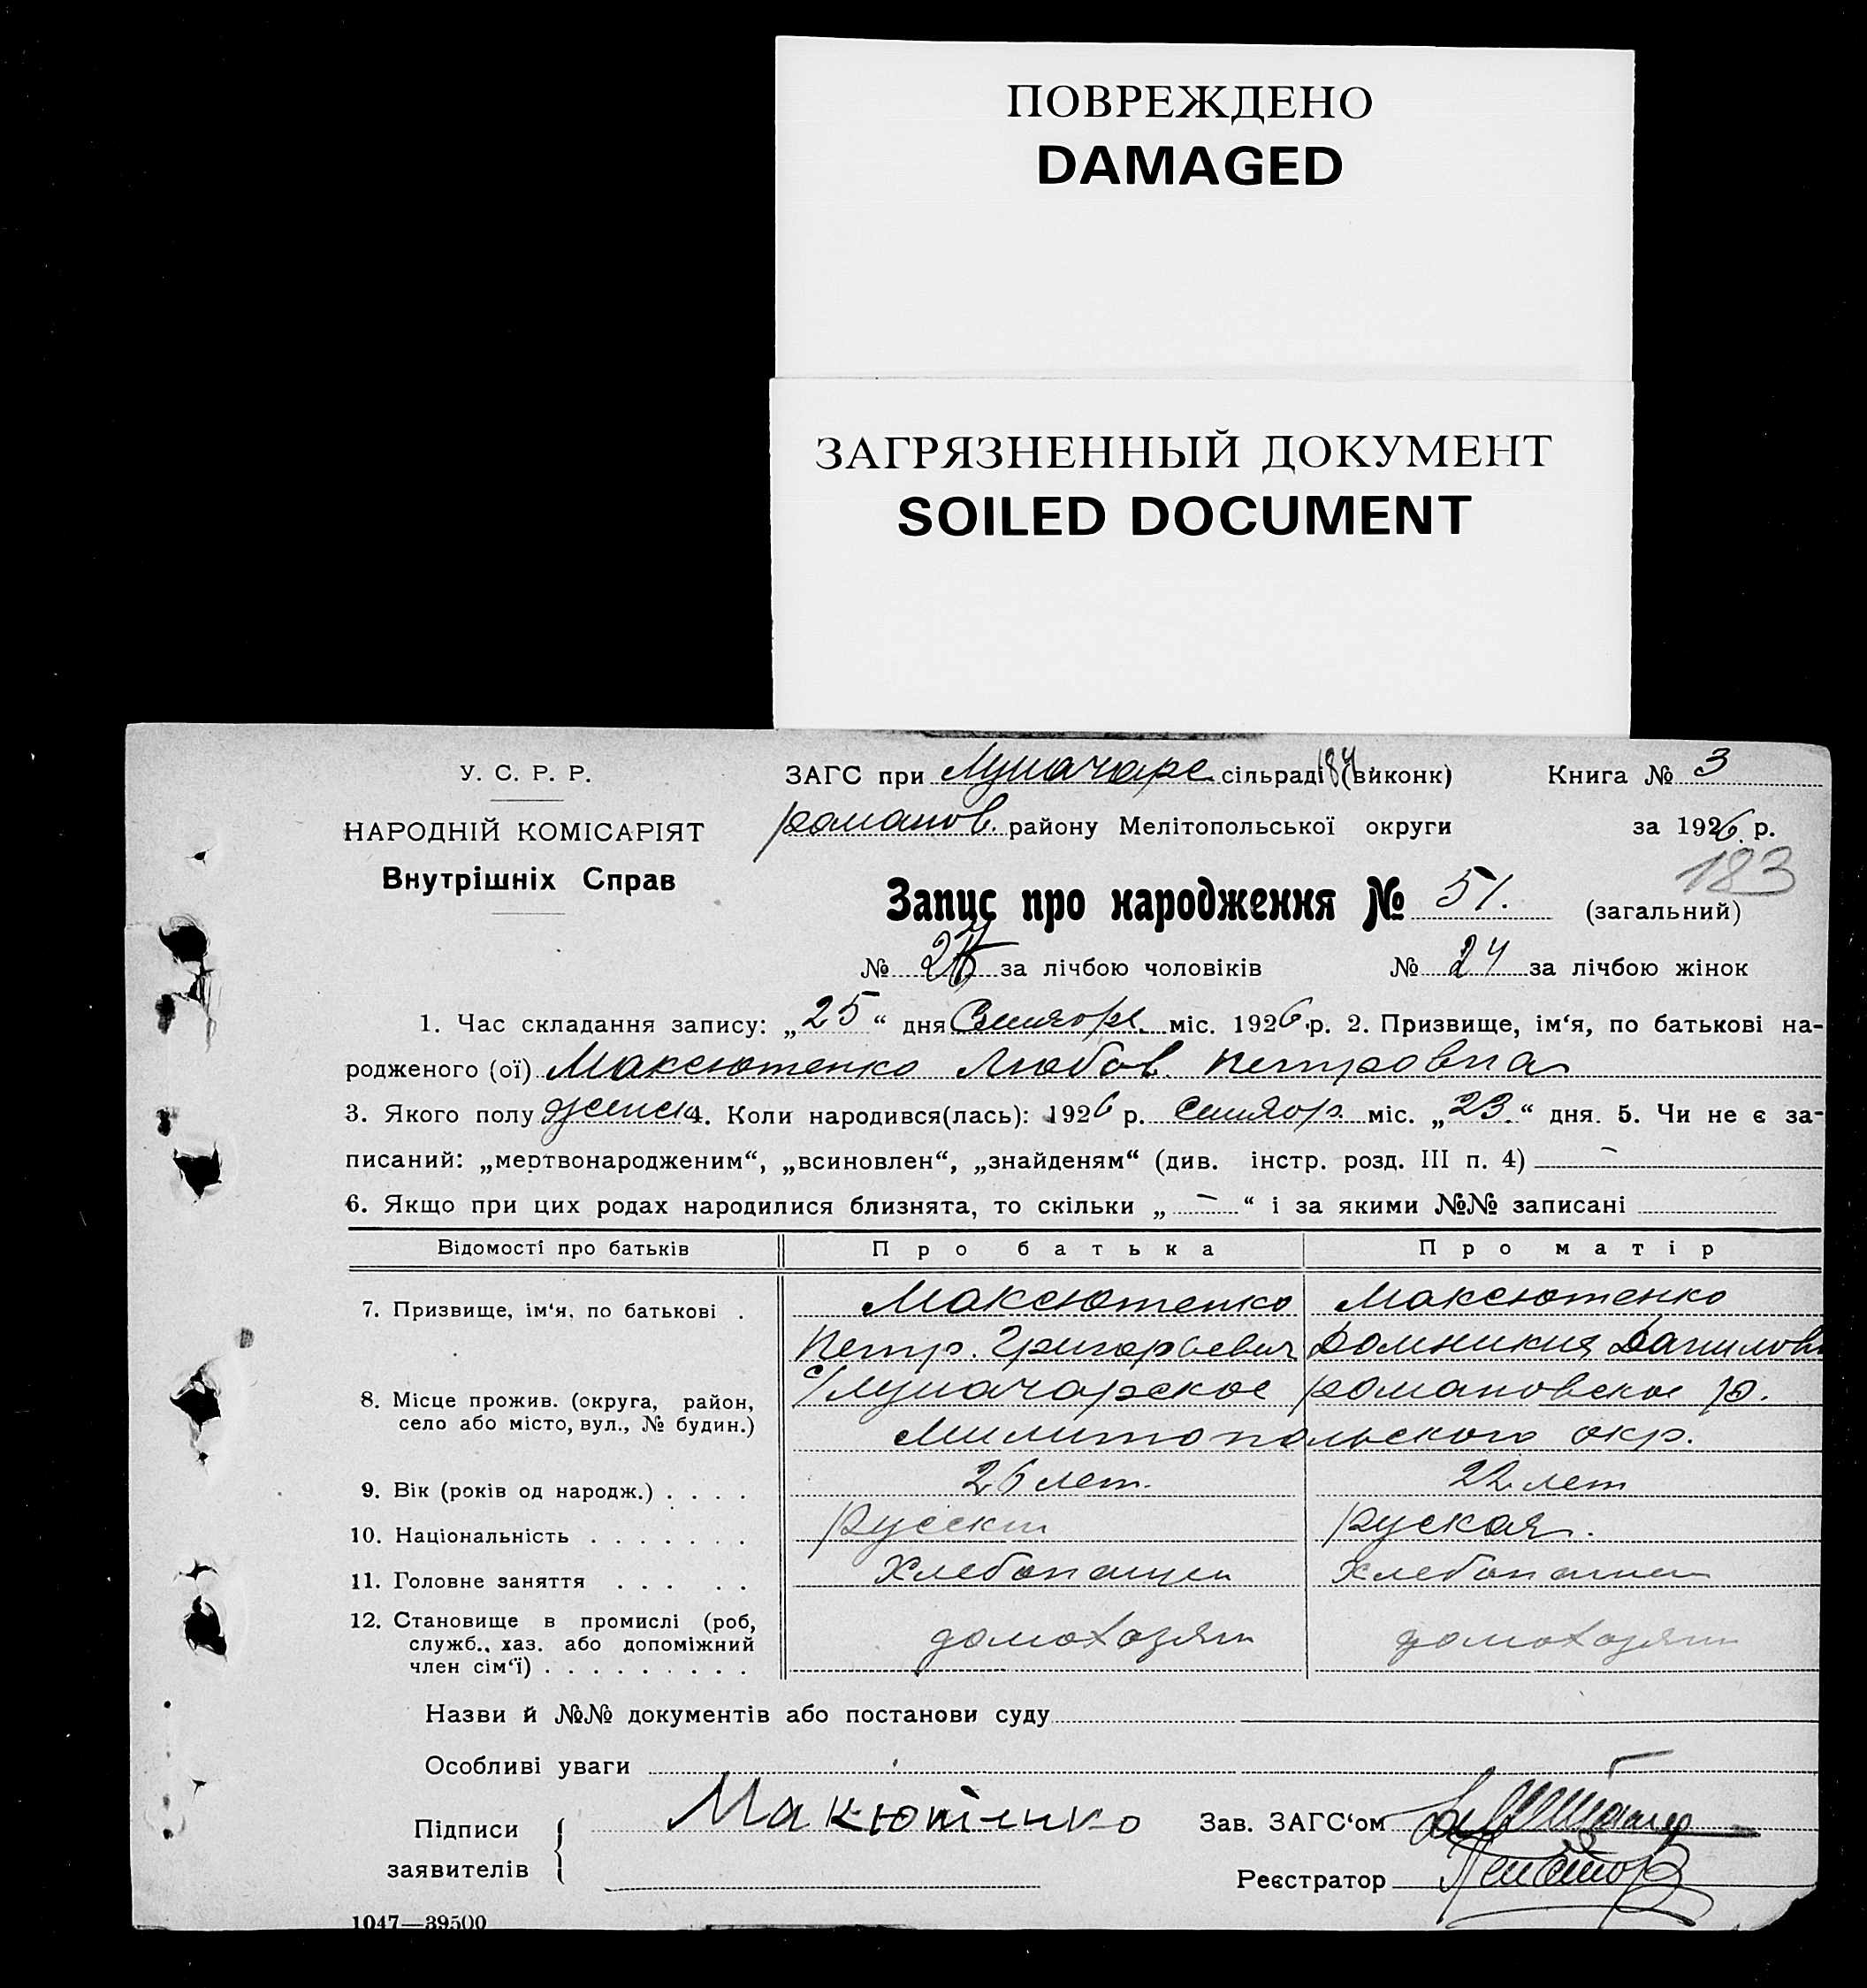 ПОВРЕЖДЕНО
DAMAGED
ЗАГРЯЗНЕННЫЙ ДОКУМЕНТ
SOILED DOCUMENT
У. С. Р. Р.
НАРОДНІЙ КОМІСАРІЯТ
Внутрішніх Справ
ЗАГС при Луначарс сільраді (виконк) Книга № 3
романов. району Мелітопольської округи за 1926 р.
183
Запис про народження № 51. (загальний)
№ за лічбою чоловіків № 24 за лічбою жінок
1. Час складання запису: „25“ дня міс. 1926 р. 2. Призвище, ім‘я, по батькові на-
родженого (ої) Максютенко Любов. Петровна
3. Якого полу женск 4. Коли народився(лась): 1926 р. сентяор. міс. „23.“ дня. 5. Чи не є за-
писаний: „мертвонародженим“, „всиновлен“, „знайденям“ (див. інстр. розд. III п. 4) —
6. Якщо при цих родах народилися близнята, то скільки „—“ і за якими №№ записані
Відомості про батьків Про батька Про матір
7. Призвище, ім‘я, по батькові . Максютенко Максютенко
Петр. Григорьевич Домникия Данилов
8. Місце прожив. (округа, район, с/Луначарское романовское р.
село або місто, вул., № будин.) Милитопольского окр.
9. Вік (років од народж.) . . . . 26 лет. 22 лет
10. Національність . . . . . . . Русский руская.
11. Головне заняття . . . . . Хлебопашец Хлебопашец
12. Становище в промислі (роб,
служб., хаз. або допоміжний домохозяин домохозяин
член сім‘ї) . . . . . . . . .
Назви й №№ документів або постанови суду
Особливі уваги
Підписи Макютінко Зав. ЗАГС‘ом
заявителів Реєстратор
1047—39500